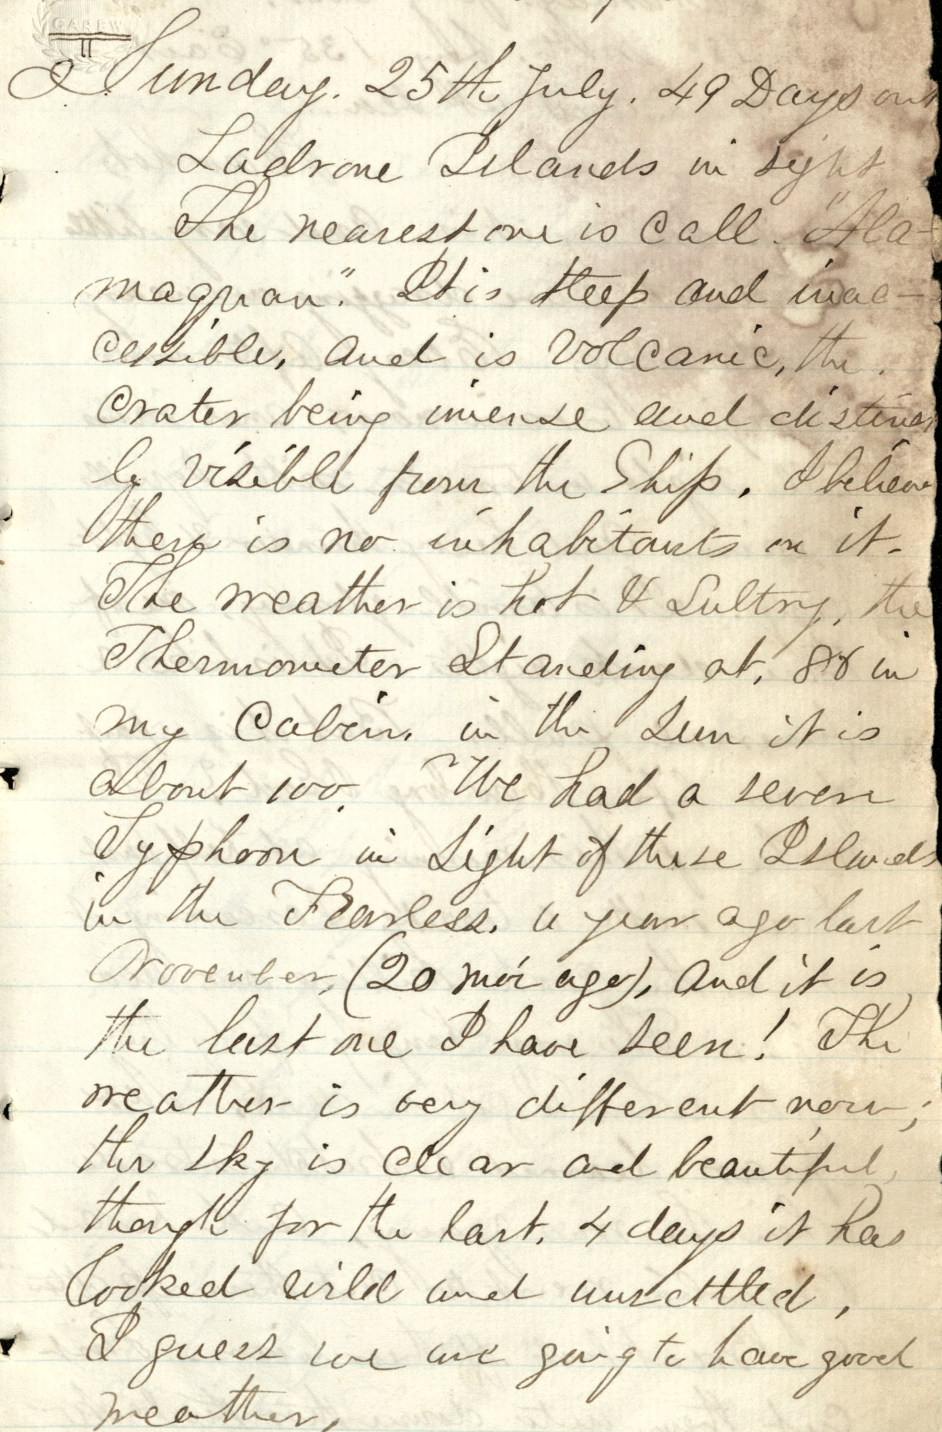 CAREW
11
Sunday. 25th July. 49 Days out
Ladrone Islands in sight
The nearest one is call. "Ala-
maguan". It is steep and inac-
cessible, and is Volcanic, the
Crater being imense and distinct
ly visible from the Ship. I believe
there is no inhabitants on it.
The weather is hot & Sultry, the
Thermometer Standing at. 88 in
my Cabin, in the Sun it is
about 100. We had a severe
Typhoon in Sight of these Islands
in the Fearless. a year ago last
November, (20 mos ago), and it is
the last one I have seen! The
weather is very different now;
the sky is clear and beautiful,
though for the last. 4 days it has
looked wild and unsettled,
I guess we are going to have good
weather,